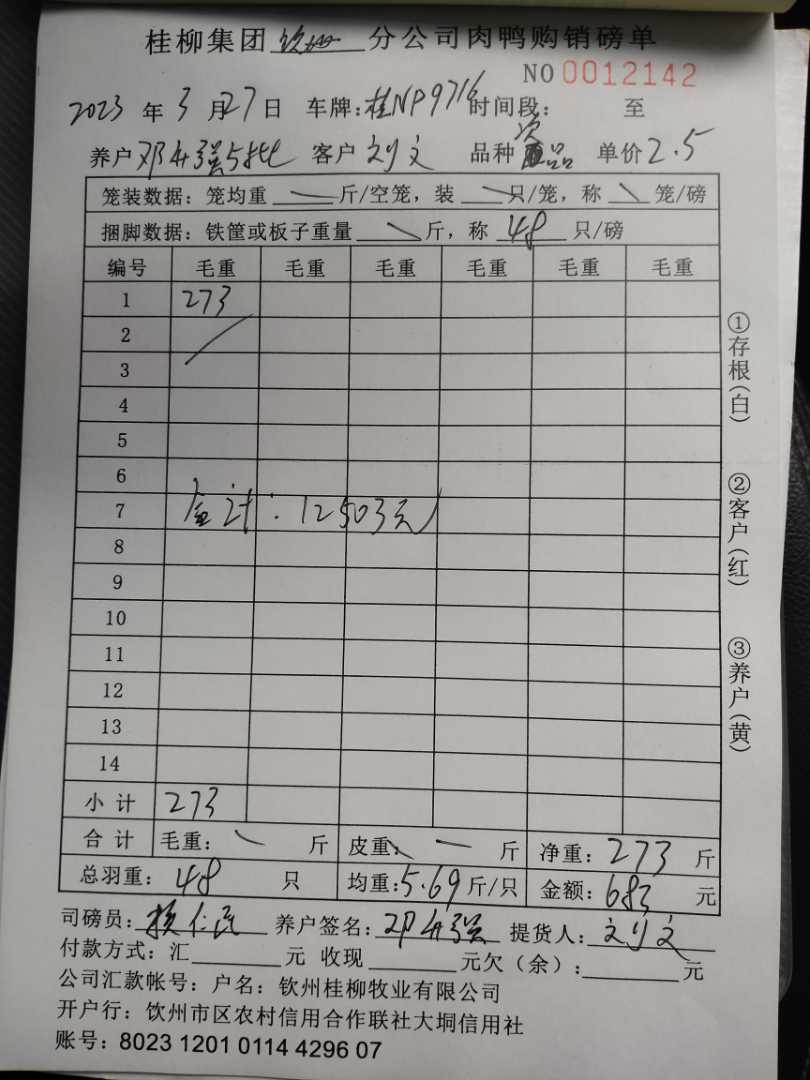 桂柳集团钦州分公司肉鸭购销磅单
NO 0012142
2023年3月27日 车牌:桂NP9716 时间段: 至
养户 邓升强5批 客户 刘文 品种 次品 单价 2.5
笼装数据:笼均重 斤/空笼,装 只/笼,称 笼/磅
捆脚数据:铁筐或板子重量 斤,称 48 只/磅
编号 毛重 毛重 毛重 毛重 毛重 毛重
1 273
2
3
4
5
6
7 合计:12503元
8
9
10
11
12
13
14
小 计 273
合 计 毛重: 斤 皮重: 斤 净重:273 斤
总羽重: 48 只 均重:5.69 斤/只 金额:683 元
司磅员: 养户签名:邓升强 提货人:刘文
付款方式:汇 元 收现 元欠(余): 元
公司汇款帐号:户名:钦州桂柳牧业有限公司
开户行:钦州市区农村信用合作联社大垌信用社
账号:8023 1201 0114 4296 07
①存根(白)
②客户(红)
③养户(黄)